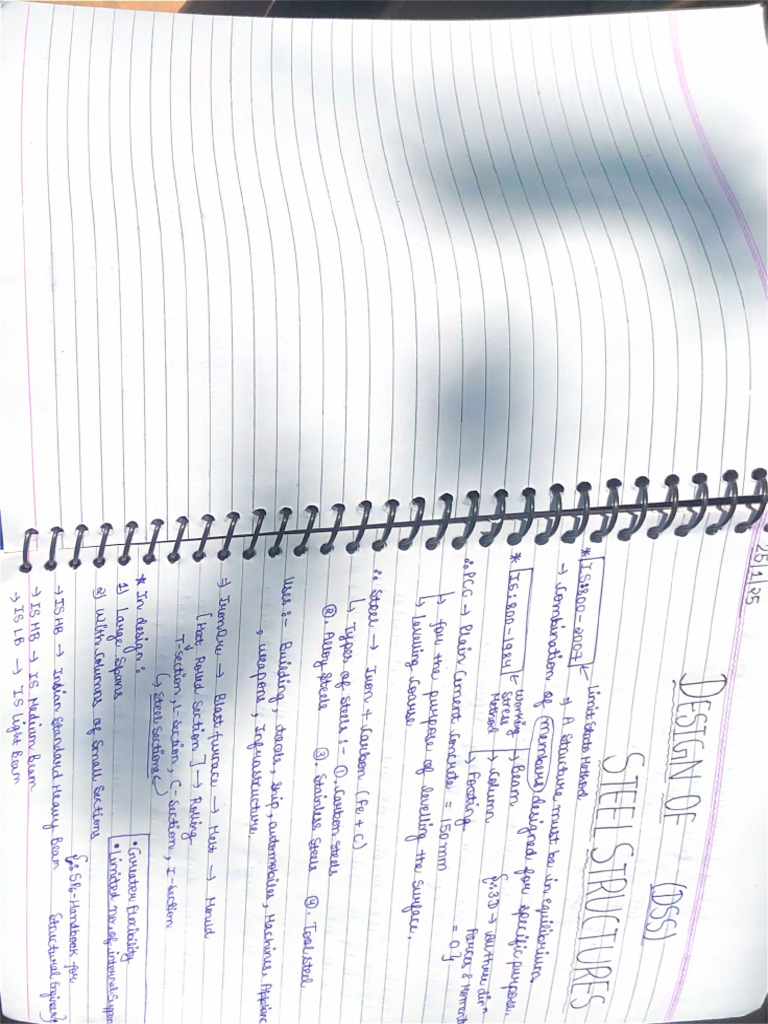 25/1/25
DESIGN OF (DSS)
STEEL STRUCTURES
* IS:800-2007 ← Limit State Method ⇒ A Structure must be in equilibrium.
→ Combination of members designed for specific purpose.
* IS:800-1984 ← Working Stress Method
→ Beam
↳ Column
↳ Footing
{∵ 3D → all three dirⁿ Forces & Moments = 0}
∴ PCC → Plain Cement Concrete = 150mm
↳ for the purpose of levelling the surface.
↳ Levelling Course
∴ Steel → Iron + Carbon (Fe + C)
↳ Types of Steels :- ①. Carbon Steels
②. Alloy Steels ③. Stainless Steels ④. Tool steel
Uses :- Building, tools, ship, automobiles, Machines,
, weapons, Infrastructure.
→ Iron Ore → Blast furnace → Melt → Mould
[Hot Rolled Section] → Rolling
T-Section, L-Section, C-Section, I-Section
↳ Steel Sections
* In design :
1) Large Spans
2) With Columns of Small Sections
• Greater flexibility
• Limited no. of internal
→ ISHB → Indian Standard Heavy Beam
{∵ SP6-Handbook for Structural Engineers}
→ ISMB → IS Medium Beam
→ ISLB → IS Light Beam